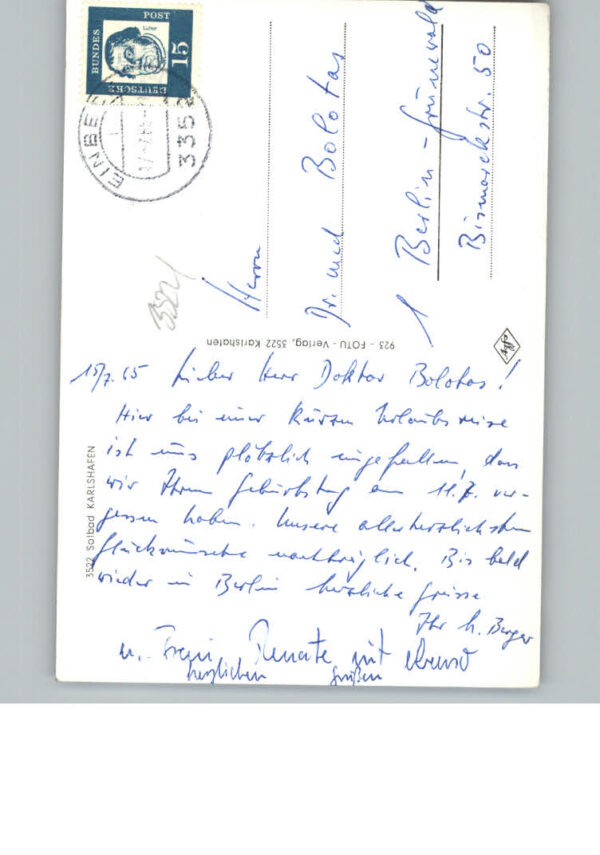 DEUTSCHE
BUNDES
POST
15
Luther
EINBECK
3352
3522
Herrn
Dr. med Bolotas
1 Berlin-Grunewald
Bismarckstr. 50
923 - FOTU - Verlag, 3522 Karlshafen
3522 Solbad KARLSHAFEN
15/7.65 Lieber Herr Doktor Bolotas!
Hier bei einer kurzen Urlaubsreise
ist uns plötzlich eingefallen, dass
wir Ihren Geburtstag am 11.7. ver-
gessen haben. Unsere allerherzlichsten
Glückwünsche nachträglich. Bis bald
wieder in Berlin herzliche Grüsse
Ihr h. Berger
u. Frau Renate mit ebenso
herzlichen Grüßen